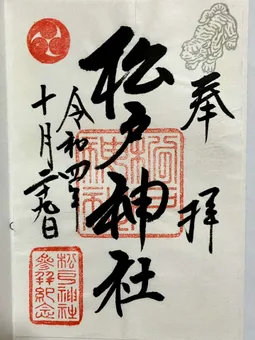 奉拝
松戸神社
令和四年
十月二十九日
松戸神社
参拜紀念